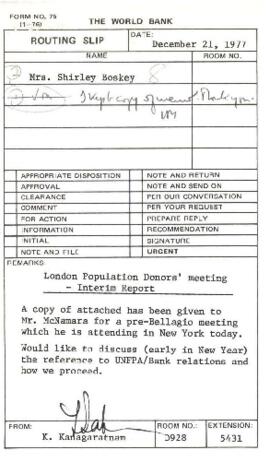 FORM NO. 75
(1-76)
THE WORLD BANK
ROUTING SLIP
DATE:
December 21, 1977
NAME
ROOM NO.
Mrs. Shirley Boskey
I kept copy of
APPROPRIATE DISPOSITION
NOTE AND RETURN
APPROVAL
NOTE AND SEND ON
CLEARANCE
PER OUR CONVERSATION
COMMENT
PER YOUR REQUEST
FOR ACTION
PREPARE REPLY
INFORMATION
RECOMMENDATION
INITIAL
SIGNATURE
NOTE AND FILE
URGENT
REMARKS
London Population Donors' meeting
- Interim Report
A copy of attached has been given to
Mr. McNamara for a pre-Bellagio meeting
which he is attending in New York today.
Would like to discuss (early in New Year)
the reference to UNFPA/Bank relations and
how we proceed.
FROM:
K. Kanagaratnam
ROOM NO.:
D928
EXTENSION:
5431